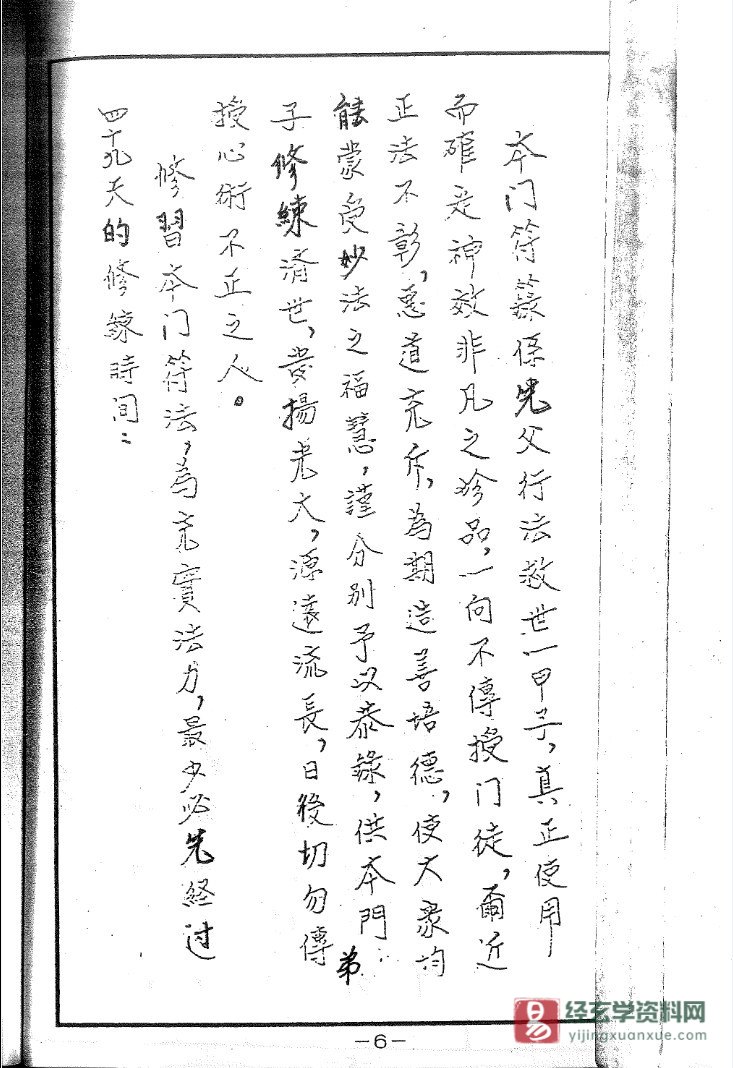 本门符籙係先父行法救世一甲子,真正使用
而確是神效非凡之珍品,一向不傳授门徒,爾近
正法不彰,惡道充斥,為期造善培德,使大衆均
能蒙受妙法之福慧,謹分别予以恭錄,供本門弟
子修練濟世,發揚光大,源遠流長,日後切勿傳
授心術不正之人。
修習本门符法,為充實法力,最少必先経过
四十九天的修錬時间:
-6-
易
经玄学资料网
yijingxuanxue.com